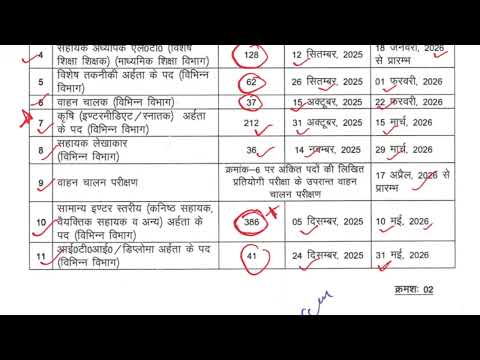 4 सहायक अध्यापक एल0टी0 (विशेष शिक्षा शिक्षक) (माध्यमिक शिक्षा विभाग) 128 12 सितम्बर, 2025 18 जनवरी, 2026 से प्रारम्भ
5 विशेष तकनीकी अर्हता के पद (विभिन्न विभाग) 62 26 सितम्बर, 2025 01 फरवरी, 2026
6 वाहन चालक (विभिन्न विभाग) 37 15 अक्टूबर, 2025 22 फरवरी, 2026
7 कृषि (इण्टरमीडिएट/स्नातक) अर्हता के पद (विभिन्न विभाग) 212 31 अक्टूबर, 2025 15 मार्च, 2026
8 सहायक लेखाकार (विभिन्न विभाग) 36 14 नवम्बर, 2025 29 मार्च, 2026
9 वाहन चालन परीक्षण क्रमांक-6 पर अंकित पदों की लिखित प्रतियोगी परीक्षा के उपरान्त वाहन चालन परीक्षण 17 अप्रैल, 2026 से प्रारम्भ
10 सामान्य इण्टर स्तरीय (कनिष्ठ सहायक, वैयक्तिक सहायक व अन्य) अर्हता के पद (विभिन्न विभाग) 386 05 दिसम्बर, 2025 10 मई, 2026
11 आई0टी0आई0/डिप्लोमा अर्हता के पद (विभिन्न विभाग) 41 24 दिसम्बर, 2025 31 मई, 2026
क्रमशः 02